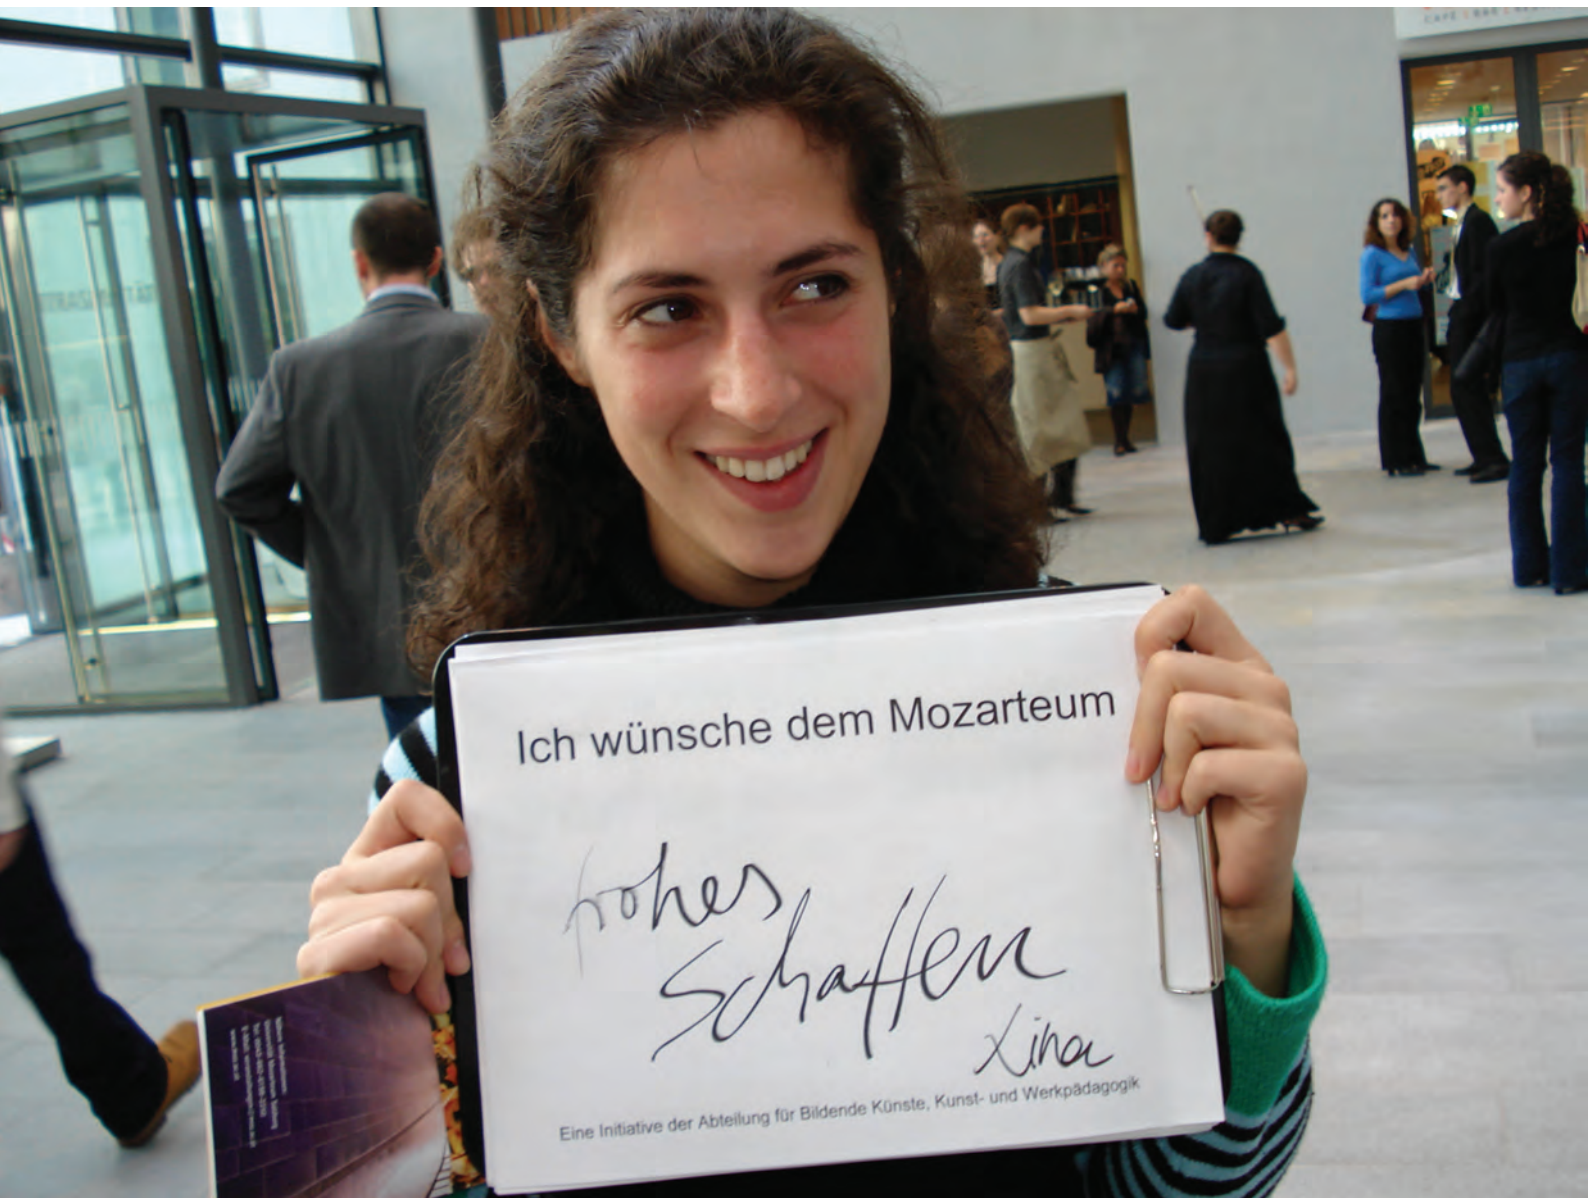 CAFÉ
Ich wünsche dem Mozarteum
frohes
Schaffen
Lina
Eine Initiative der Abteilung für Bildende Künste, Kunst- und Werkpädagogik